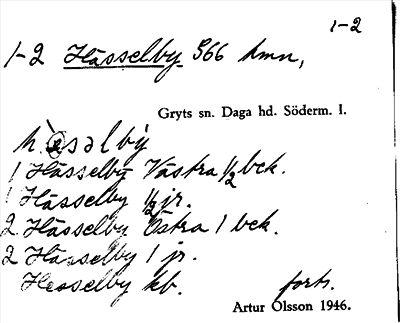 1-2
1-2 Hässelby 566 hmn,
Gryts sn. Daga hd. Söderm. l.
hæ̀səlby
1 Hässelby Västra 1/2 bck.
1 Hässelby 1/2 jr.
2 Hässelby Östra 1 bck.
2 Hässelby 1 jr.
Hesselby kb. forts.
Artur Olsson 1946.